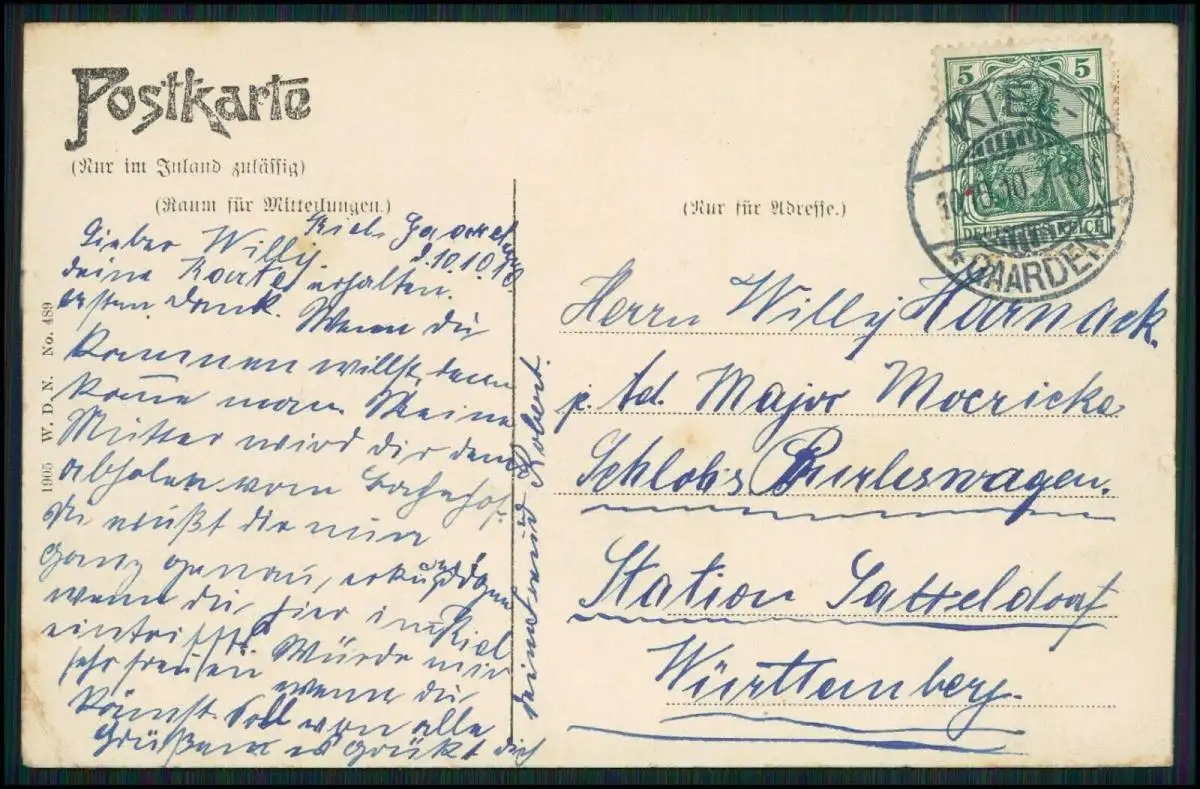 Postkarte
(Nur im Inland zulässig)
(Raum für Mitteilungen.)
Kiel Gaarden
9.10.10.
Lieber Willy.
deine Karte erhalten.
besten Dank. Wenn du
kommen willst, dann
komme man. Meine
Mutter wird dir dann
abholen vom Bahnhof.
Du mußt dir nur
ganz genau, erkundigen
wenn du, hier in Kiel
eintriffst. Würde mir
sehr freuen wenn du
kämst. Soll von alle
Grüßen es grüßt dich
dein Freund Robert.
1905 W. D. N. No. 489
(Nur für Adresse.)
5 5
DEUTSCHES REICH
KIEL
10.10.10
* GAARDEN
Herrn Willy Harnack.
p. Ad. Major Moericke
Schloß Burleswagen.
Station Satteldorf
Württemberg.